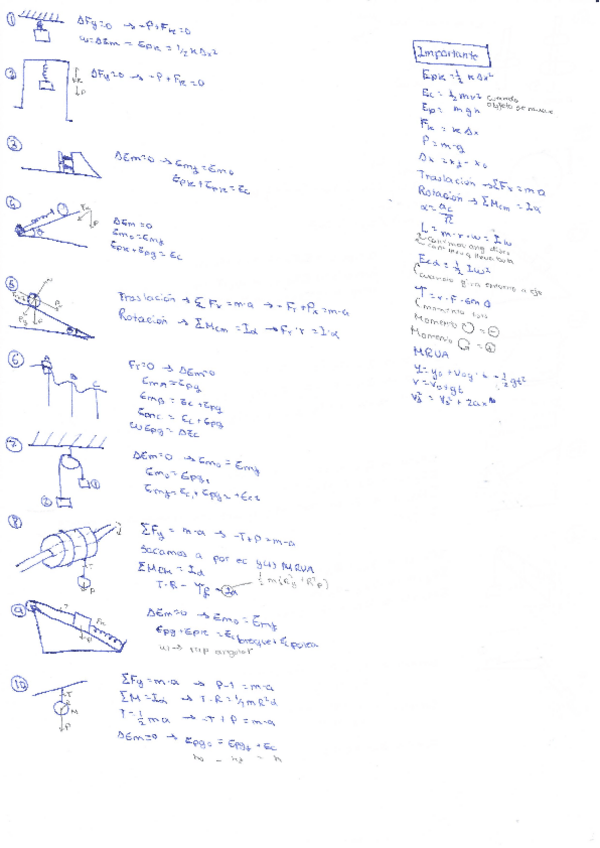 ① ΣFy=0 → -P+Fk=0
W=ΔEm = Epk = 1/2 kΔx²
② ΣFy=0 → -P+Fk=0
③ ΔEm=0 → Emf=Em0
Epk+Epk=Ec
④ ΔEm=0
Em0=Emf
Epk+Epg=Ec
⑤ Traslación → ΣFx=m·a → -Fr+Px=m·a
Rotación → ΣMcm=Iα → Fr·r=I·α
⑥ Fr=0 → ΔEm=0
EmA=Epg
EmB=Ec+Epg
EmC=Ec+Epg
WEpg=ΔEc
⑦ ΔEm=0 → Em0=Emf
Em0=Epg1
Emf=Ec1+Epg2+Ec2
⑧ ΣFy=m·a → -T+P=m·a
Sacamos a por ec MRUA
ΣMcm=Iα
T·R
⑨ ΔEm=0 → Em0=Emf
Epg+Epk=Ecbloque+Ecpolea
⑩ ΣFy=m·a → P-T=m·a
ΣM=Iα → T·R=1/2mR²α
T=1/2ma → -T+P=m·a
ΔEm=0 → Epg0=Epgf+Ec
Importante
Epk=1/2kΔx²
Ec=1/2mv² cuando objeto se mueve
Ep=mgh
Fk=kΔx
P=m·g
Δx=xf-x0
Traslación → ΣFx=ma
Rotación → ΣMcm=Iα
L=m·r·v=Iω
Ecα=1/2Iω²
(cuando gira entorno a eje
T=r·F·sen
Momento ↻=⊖
Momento ↺=⊕
MRUA
y=y0+v0y·t-1/2gt²
v=v0+gt